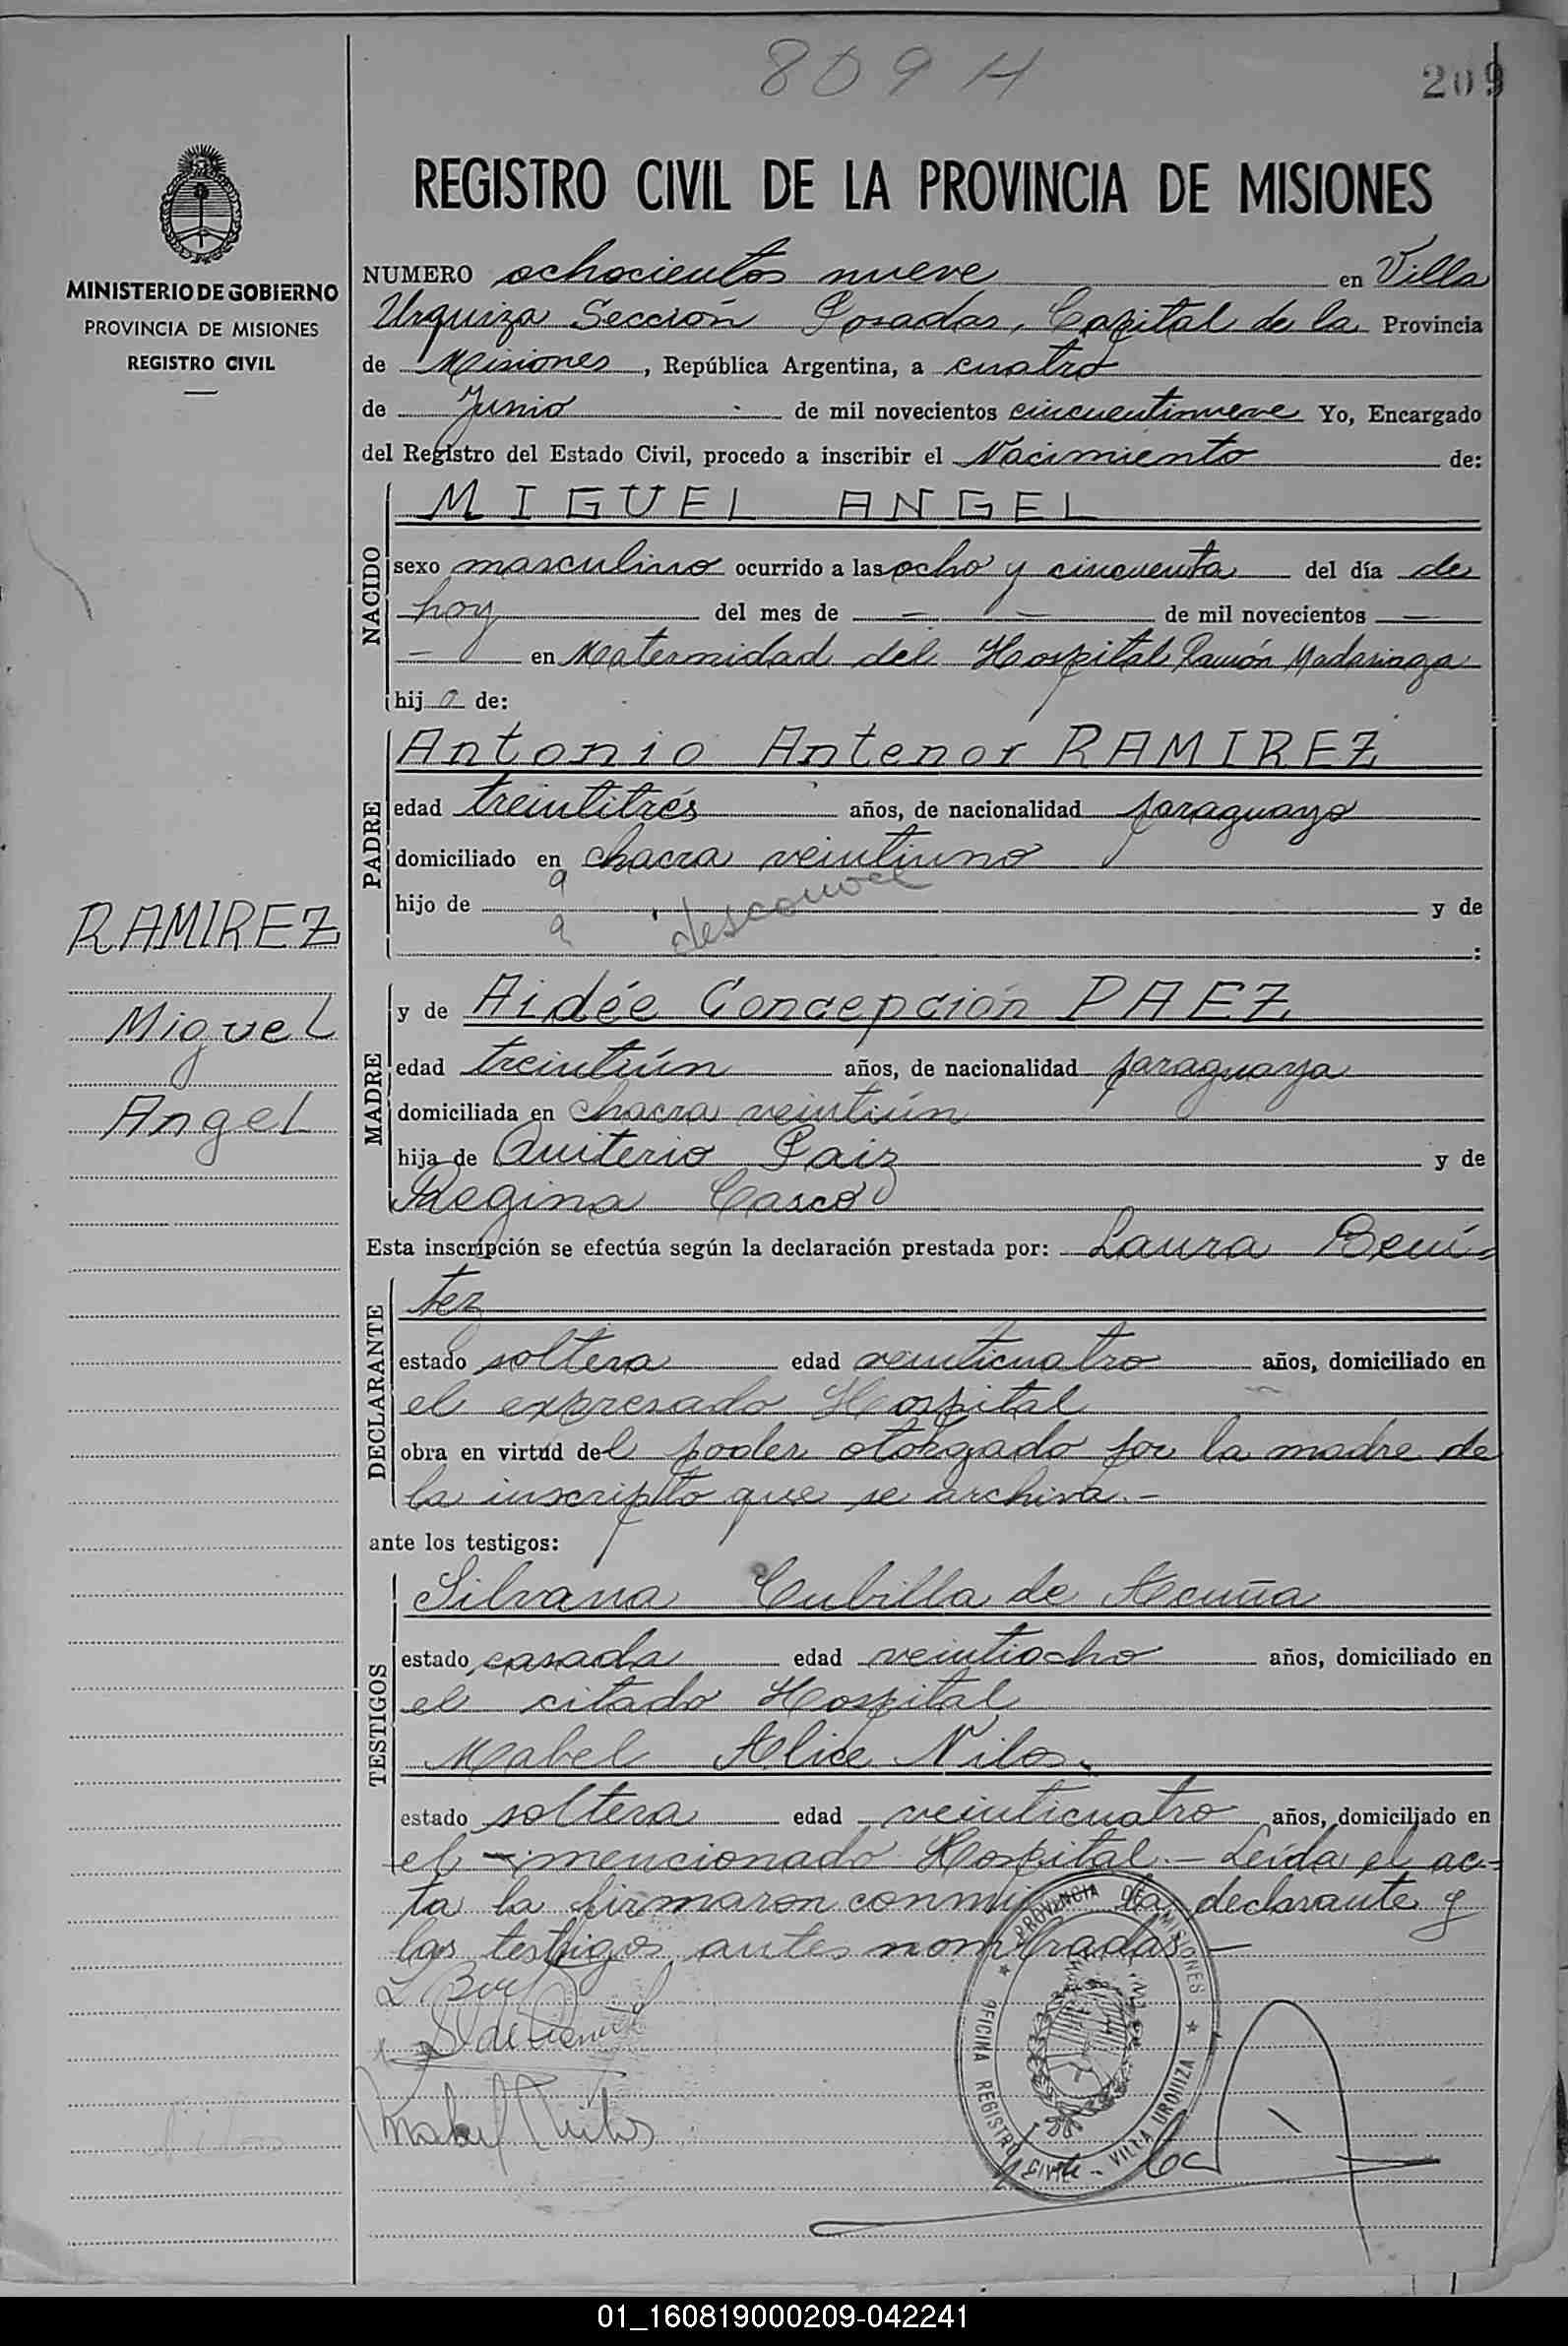 809 H
209
MINISTERIO DE GOBIERNO
PROVINCIA DE MISIONES
REGISTRO CIVIL
RAMIREZ
Miguel
Angel
REGISTRO CIVIL DE LA PROVINCIA DE MISIONES
NUMERO ochocientos nueve en Villa
Urquiza Sección Posadas, Capital de la Provincia
de Misiones, República Argentina, a cuatro
de Junio de mil novecientos cincuentinueve Yo, Encargado
del Registro del Estado Civil, procedo a inscribir el Nacimiento de:
NACIDO
MIGUEL ANGEL
sexo masculino ocurrido a las ocho y cincuenta del día de
hoy del mes de — — de mil novecientos —
— en Maternidad del Hospital Ramón Madariaga
hijo de:
PADRE
Antonio Antenor RAMIREZ
edad treintitrés años, de nacionalidad paraguayo
domiciliado en chacra veintiuno
hijo de desconoce y de
:
MADRE
y de Aidée Concepción PAEZ
edad treintiún años, de nacionalidad paraguaya
domiciliada en chacra veintiún
hija de Quiterio Paiz y de
Regina Casco
Esta inscripción se efectúa según la declaración prestada por: Laura Bení-
DECLARANTE
tez
estado soltera edad veinticuatro años, domiciliado en
el expresado Hospital
obra en virtud del poder otorgado por la madre de
la inscripto que se archiva.-
ante los testigos:
TESTIGOS
Silvana Cubilla de Acuña
estado casada edad veintiocho años, domiciliado en
el citado Hospital
Mabel Alice Nilos
estado soltera edad veinticuatro años, domiciliado en
el - mencionado Hospital.- Leída el ac-
ta la firmaron conmigo la declarante y
las testigos antes nombradas.-
PROVINCIA DE MISIONES
OFICINA REGISTRO CIVIL - VILLA URQUIZA
Mabel Nilos
01_160819000209-042241